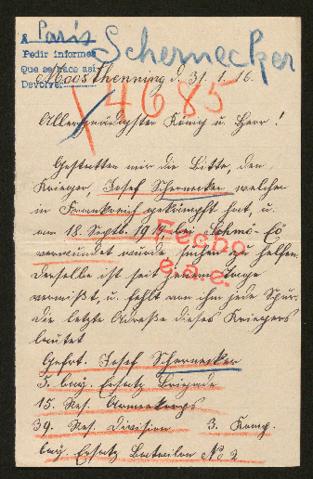 a Paris
Schernecker
Pedir informes
Que se hace así
Devolver
Moosthenning d. 31. 1. 16.
4685
Allergnädigster König u. Herr!
Gestatten mir die Bitte, den
Krieger, Josef Schernecker welcher
in Frankreich gekämpft hat, u.
am 18. Septb. 1914 bei
verwundet wurde, suchen zu helfen.
Fecho
e.a.c.
Derselbe ist seit jenem Tage
vermißt, u. fehlt von ihm jede Spur.
die letzte Adreße dieses Kriegers
lautet
Gefrt. Josef Schernecker
3. bay. Ersatz Brigade
15. Res. Armeekorps
39. Res. Division 3. Komp.
bay. Ersatz Batailon No 2